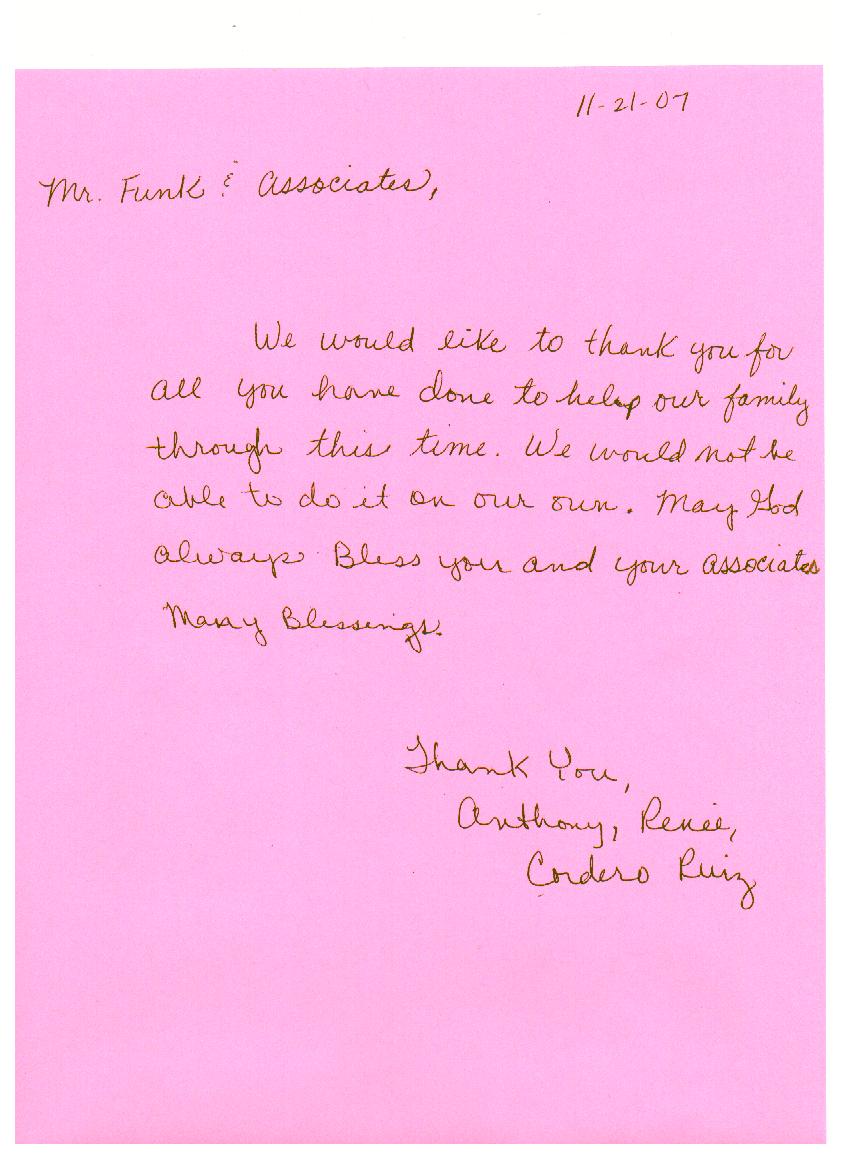 11-21-07
Mr. Funk & Associates,
We would like to thank you for
all you have done to help our family
through this time. We would not be
able to do it on our own. May God
always Bless you and your associates
Many Blessings.
Thank You,
Anthony, Renee,
Cordero Ruiz